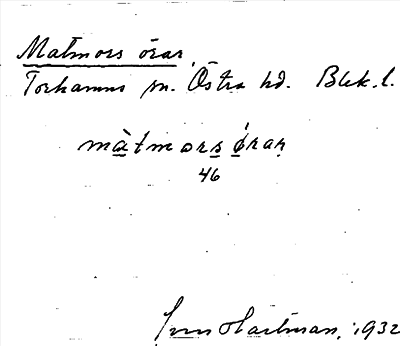 Matmors örar
Torhamns sn. Östra hd. Blek. l.
màtmorsǿrar
46
Sven Hartman, 1932